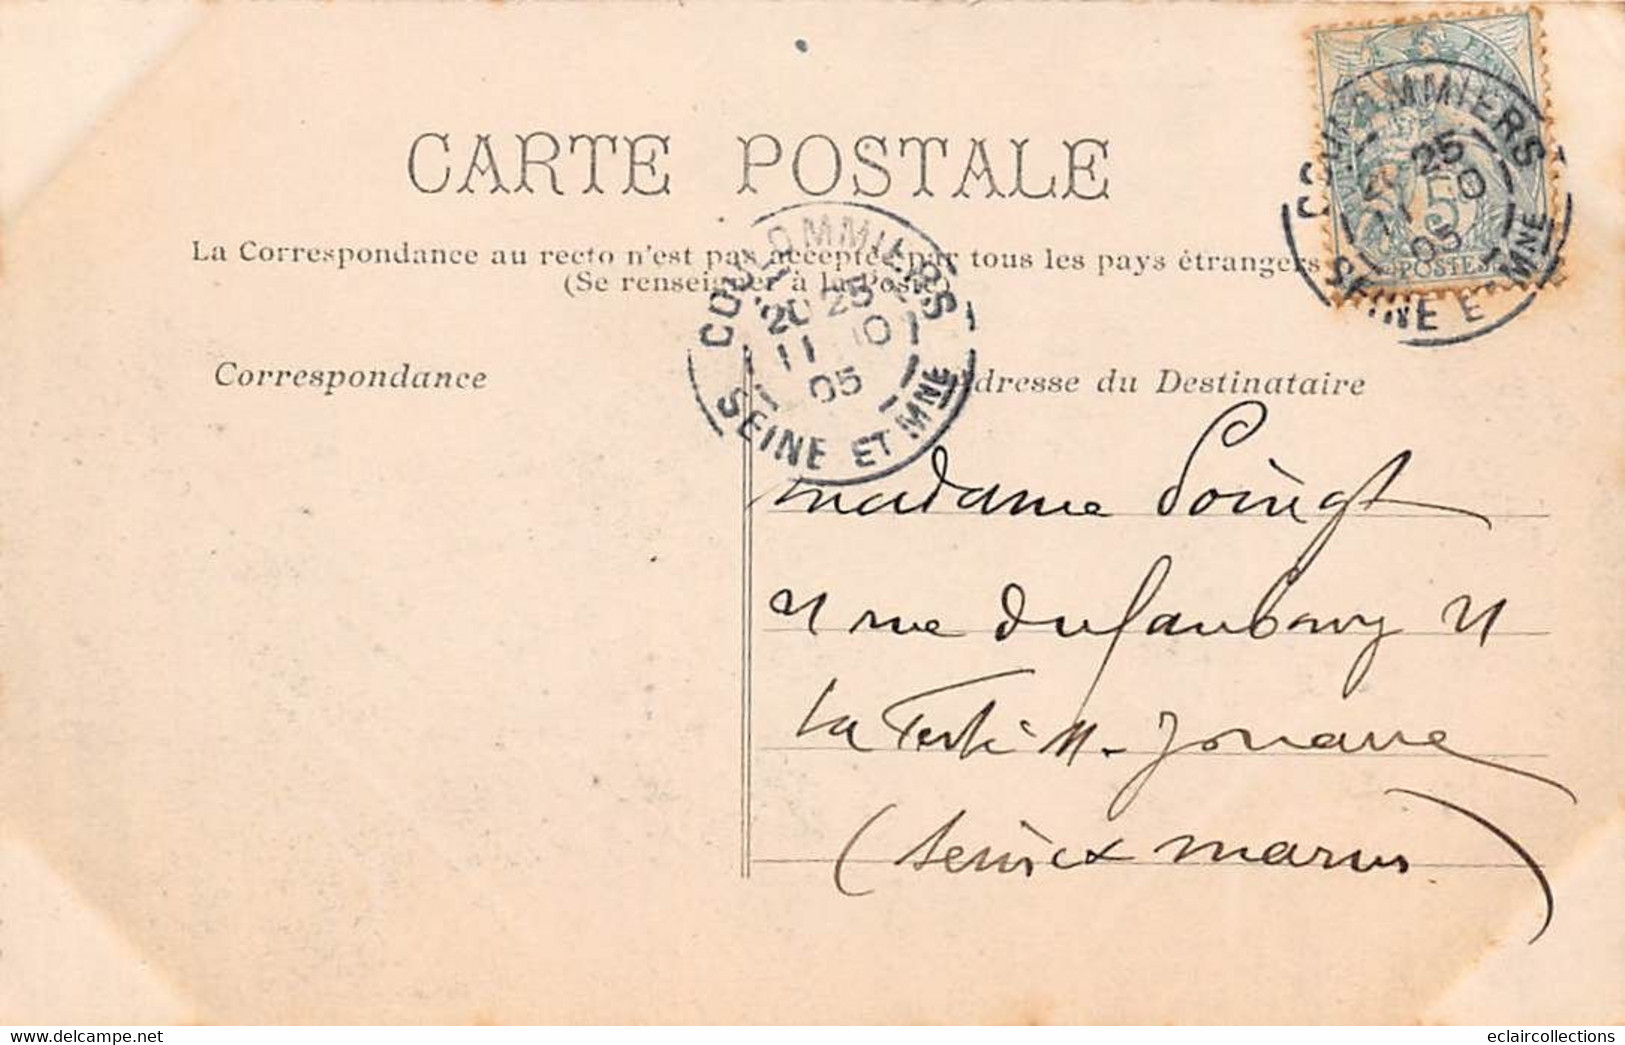 CARTE POSTALE
La Correspondance au recto n'est pas acceptée par tous les pays étrangers
(Se renseigner à la Poste)
COULOMMIERS
20 25
11 10
05
SEINE ET MNE
COULOMMIERS
25
11 10
05
SEINE ET MNE
5
POSTES
Correspondance
Adresse du Destinataire
madame Poingt
rue du faubourg
La Ferté M. Jouarre
(Seine et marne)
www.delcampe.net
eclaircollections